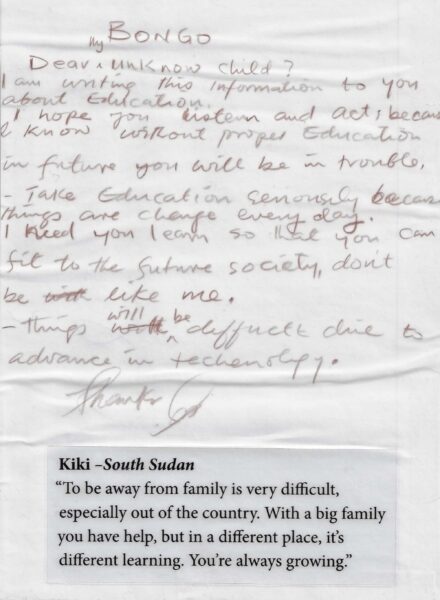 BONGO
my
Dear unknow child?
I am writing this information to you
about Education.
I hope you listern and act, becaus
I know without proper Education
in future you will be in trouble.
- Take Education seriously becaus
things are change every day.
I need you learn so that you can
fit to the future society, don't
be like me.
- things will be diffuclt due to
advance in techenology.
Thanks
Kiki –South Sudan
“To be away from family is very difficult,
especially out of the country. With a big family
you have help, but in a different place, it’s
different learning. You’re always growing.”